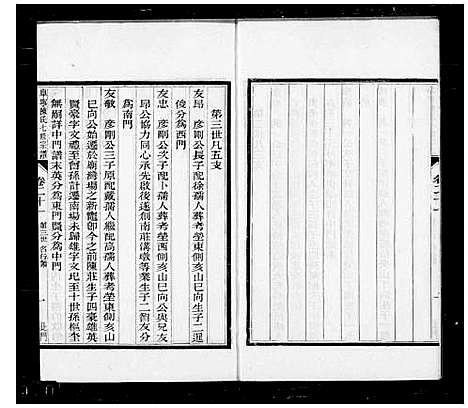 第三世凡五支
友昂 彥剛公長子配徐孺人葬考塋東側亥山巳向生子二遜
俊分爲西門
友忠 彥剛公次子配卜孺人葬考塋西側亥山巳向公與兄友
昂公協力同心承先啟後遂創南莊溝墩等業生子二智友分
爲南門
友敬 彥剛公三子原配戴孺人繼配高孺人葬考塋東側亥山
巳向公始遷於廟灣場之新竈卽今之前陳莊生子四豪雄英
賢豪字文禮至曾孫計遷南場未歸雄字文玘至十世孫樞奎
無嗣詳中門譜末英分爲東門賢分爲中門
阜寧陳氏七修宗譜 卷二十 第三世名行第 一
卷二十